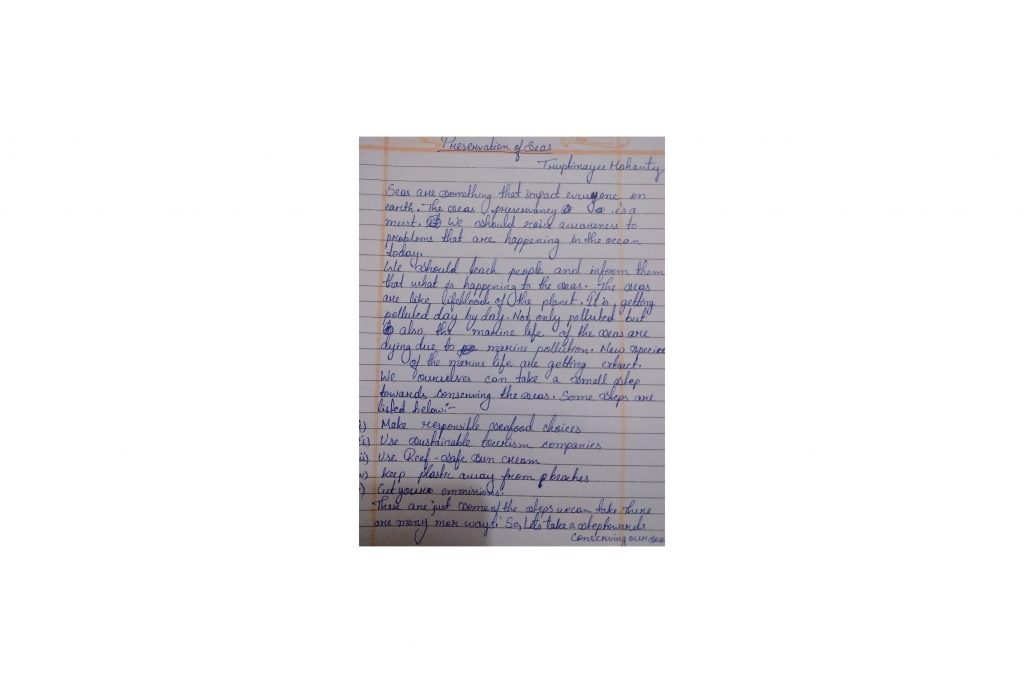 Preservation of Seas
Truptimayee Mohanty
Seas are something that impact everyone on
earth. The seas preservancy is a
must. We should raise awareness to
problems that are happening in the ocean
today.
We should teach people and inform them
that what is happening to the seas. The seas
are like lifeblood of the planet. It is getting
polluted day by day. Not only polluted but
also the marine life of the seas are
dying due to marine pollution. New species
of the marine life are getting extinct.
We ourselves can take a small step
towards conserving the seas. Some steps are
listed below:-
i) Make responsible seafood choices
ii) Use sustainable tourism companies
iii) Use Reef-safe sun cream
iv) Keep plastic away from beaches
v) Cut your emmissions.
These are just some of the steps we can take. There
are many mor ways. So, Let's take a step towards
conserving our sea